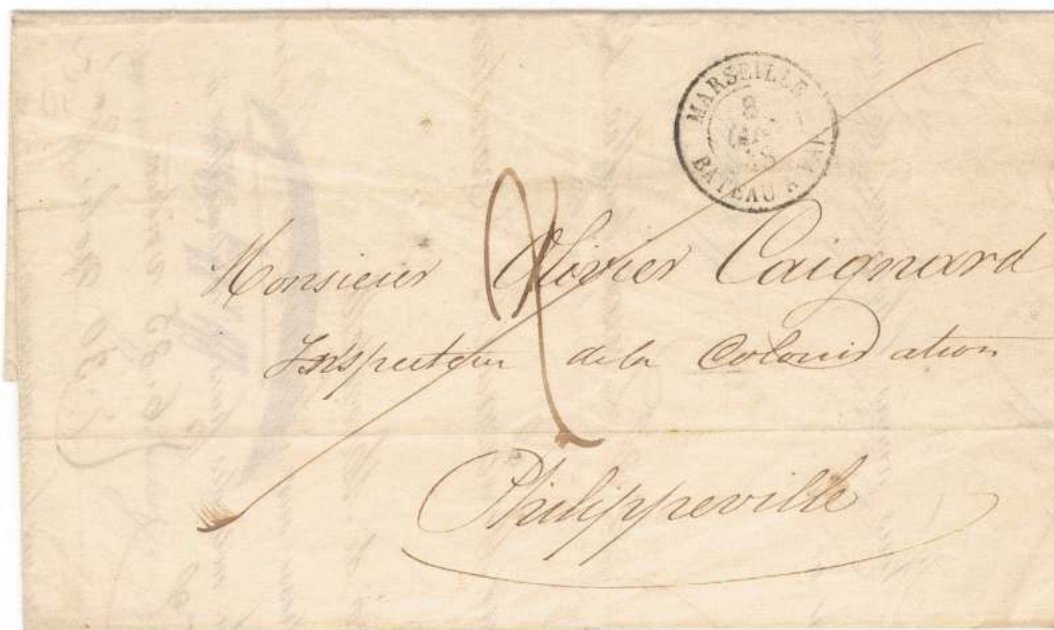 MARSEILLE
8
BATEAU A VAP
Monsieur Olivier Caignard
Inspecteur de la Colonisation
Philippeville